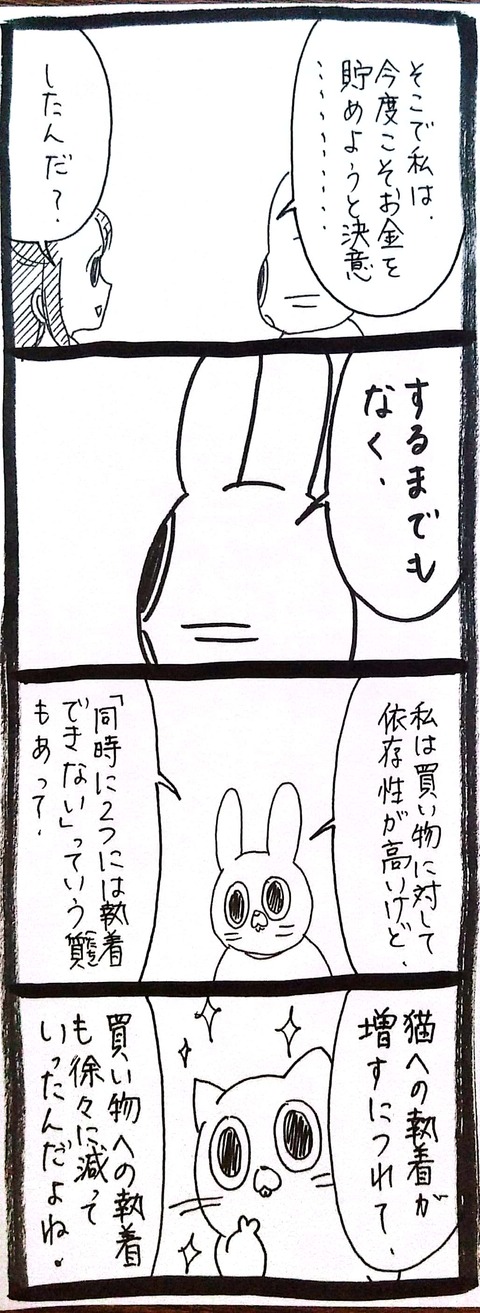 そこで私は、
今度こそお金を
貯めようと決意
………
したんだ？
するまでも
なく、
私は買い物に対して
依存性が高いけど、
「同時に2つには執着
できない」っていう質
もあって、
猫への執着が
増すにつれて、
買い物への執着
も徐々に減って
いったんだよね。